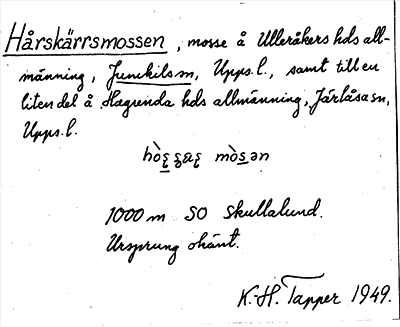 Hårskärrsmossen, mosse å Ulleråkers hds all-
männing, Jumkils sn, Upps. l., samt till en
liten del å Hagunda hds allmänning, Järlåsa sn,
Upps. l.
mòsən
1000 m SO Skullalund.
Ursprung okänt.
K.-H. Tapper 1949.